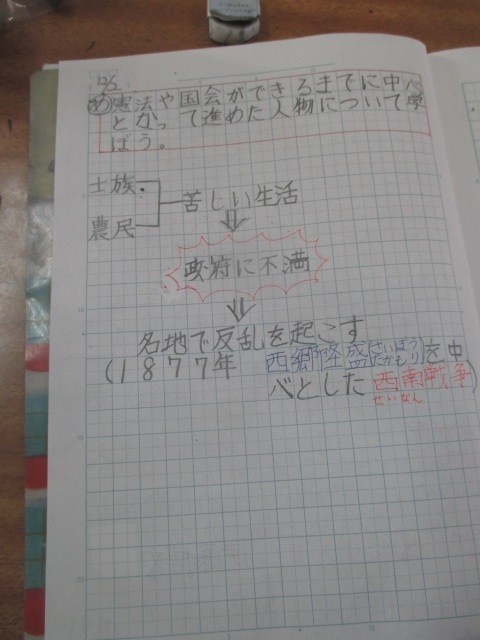 12/5
め 憲法や国会ができるまでに中心
となって進めた人物について学
ぼう。
士族
苦しい生活
農民
政府に不満
各地で反乱を起こす
(1877年 西郷隆盛(さいごうたかもり)を中
心とした 西南戦争)
せいなん